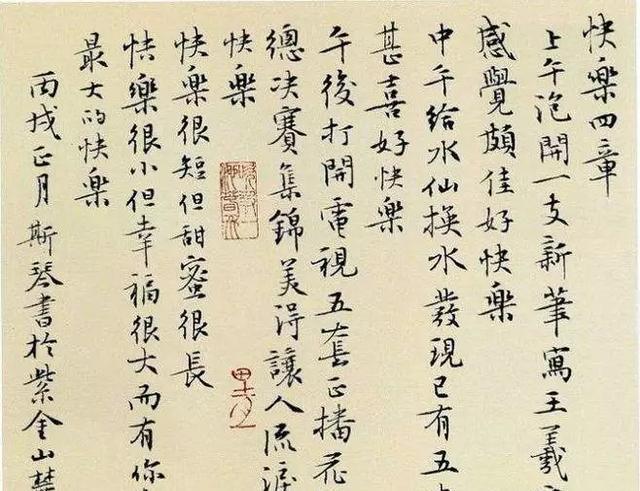 快樂四章
上午泡開一支新筆寫王羲
感覺頗佳好快樂
中午給水仙換水發現已有五
甚喜好快樂
午後打開電視五套正播花
總決賽集錦美得讓人流淚
快樂
快樂很短但甜蜜很長
快樂很小但幸福很大而有你
最大的快樂
丙戌正月斯琴書於紫金山